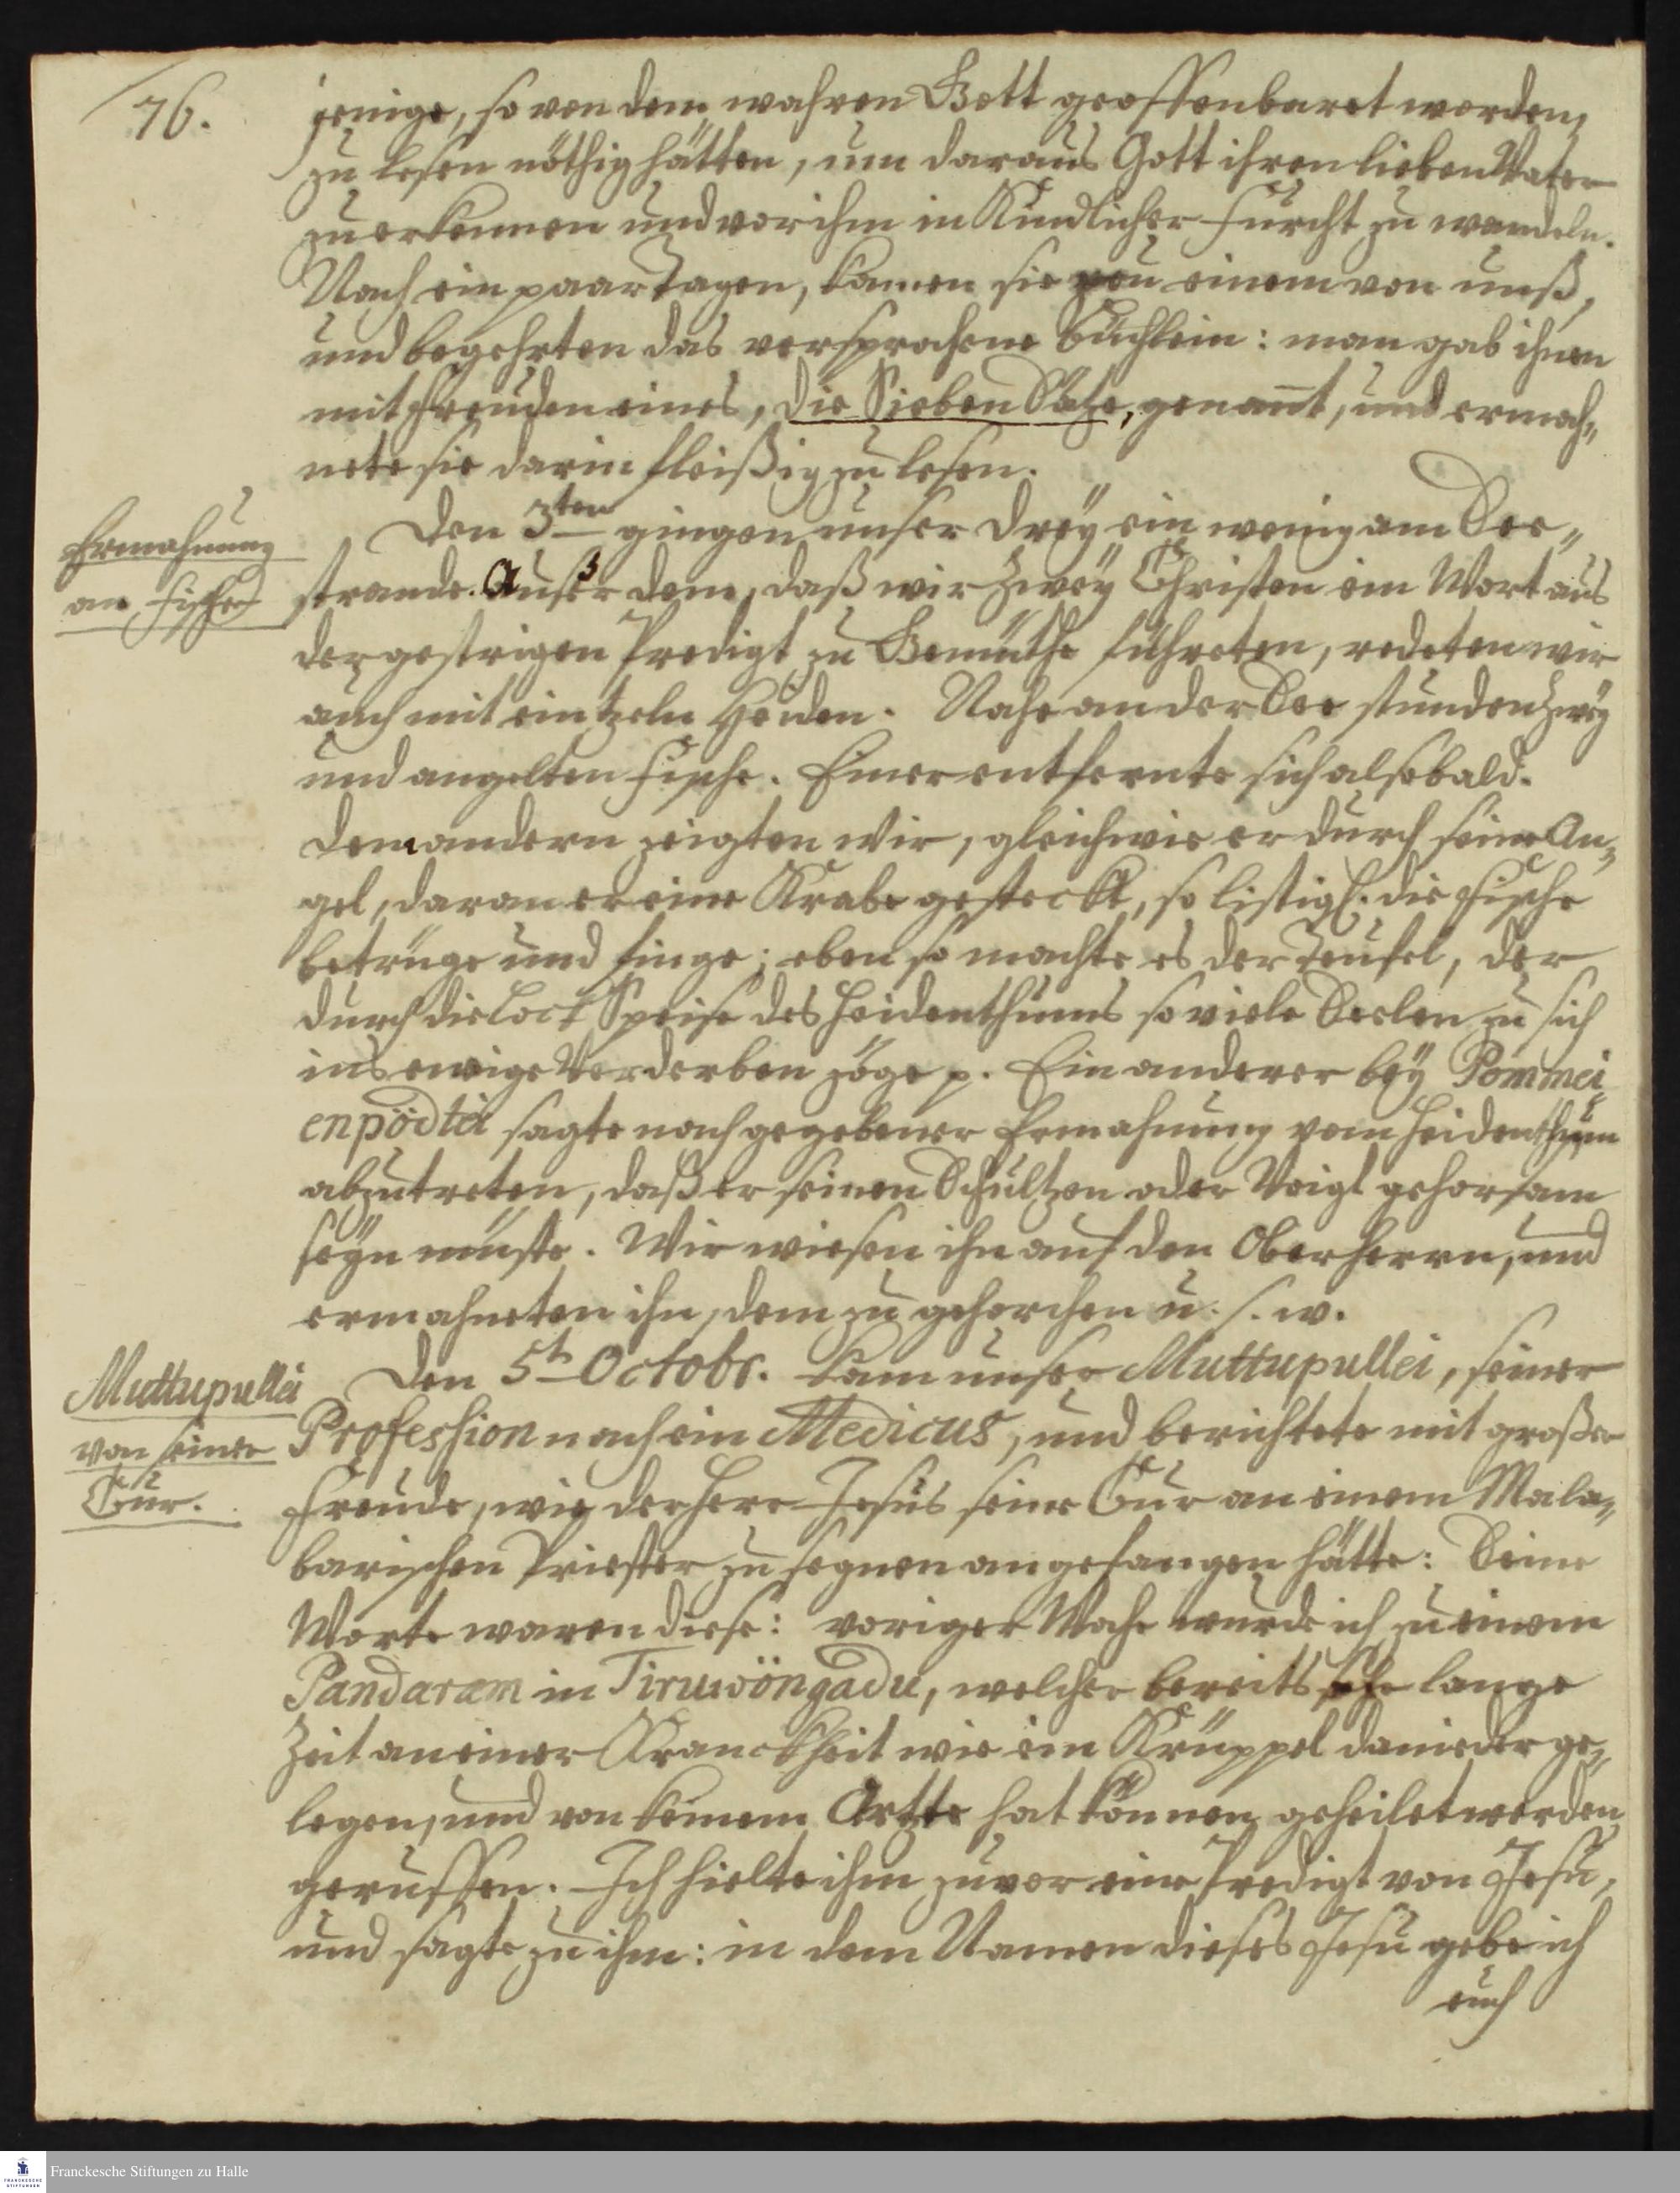 76.
jenige, so von dem wahren Gott geoffenbaret worden,
zu lesen nöthig hätten, um daraus Gott ihren lieben Vater
zu erkennen und vor ihm in Kindlicher Furcht zu wandeln.
Nach ein paar Tagen, kamen sie zu einem von unß,
und begehrten das versprochene Büchlein: man gab ihnen
mit Freuden eines, die Sieben Sätze, genannt, und ermah„
nete sie darin fleißig zu lesen.
Ermahnung
an Fischer
Den 3ten gingen unser drey ein wenig am See„
strande. Außer dem, daß wir zwey Christen ein Wort aus
der gestrigen Predigt zu Gemüthe führeten, redeten wir
auch mit eintzeln Heiden. Nahe an der See stunden zwey
und angelten Fische. Einer entfernte sich alsobald.
Dem andern zeigten wir, gleichwie er durch seine An„
gel, daran er eine Krabe gesteckt, so listigl. die Fische
betrüge und finge; eben so machte es der Teufel, der
durch die Lock Speise des Heidenthums so viele Seelen zu sich
ins ewige Verderben zöge p. Ein anderer bey Pommei„
enpödtei sagte nach gegebener Ermahnung vom Heidenthum
abzutreten, daß er seinen Schultzen oder Voigt gehorsam
seyn müste. Wir wiesen ihn auf den Oberherrn, und
ermahneten ihn, dem zu gehorchen u. s. w.
Muttupullei
von seiner
Cur.
Den 5t Octobr. kam unser Muttupullei, seiner
Profession nach ein Medicus, und berichtete mit großer
Freude, wie der Herr Jesus seine Cur an einem Mala„
barischen Priester zu segnen angefangen hätte: Seine
Worte waren diese: voriger Woche wurde ich zu einem
Pandaram in Tiruwöngadu, welcher bereits sehr lange
Zeit an einer Kranckheit wie ein Krüppel danieder ge„
legen, und von keinem Artzte hat können geheilet werden,
geruffen. Ich hielte ihm zuvor eine Predigt von Jesu,
und sagte zu ihm: in dem Namen dieses Jesu gebe ich
euch
Franckesche Stiftungen zu Halle